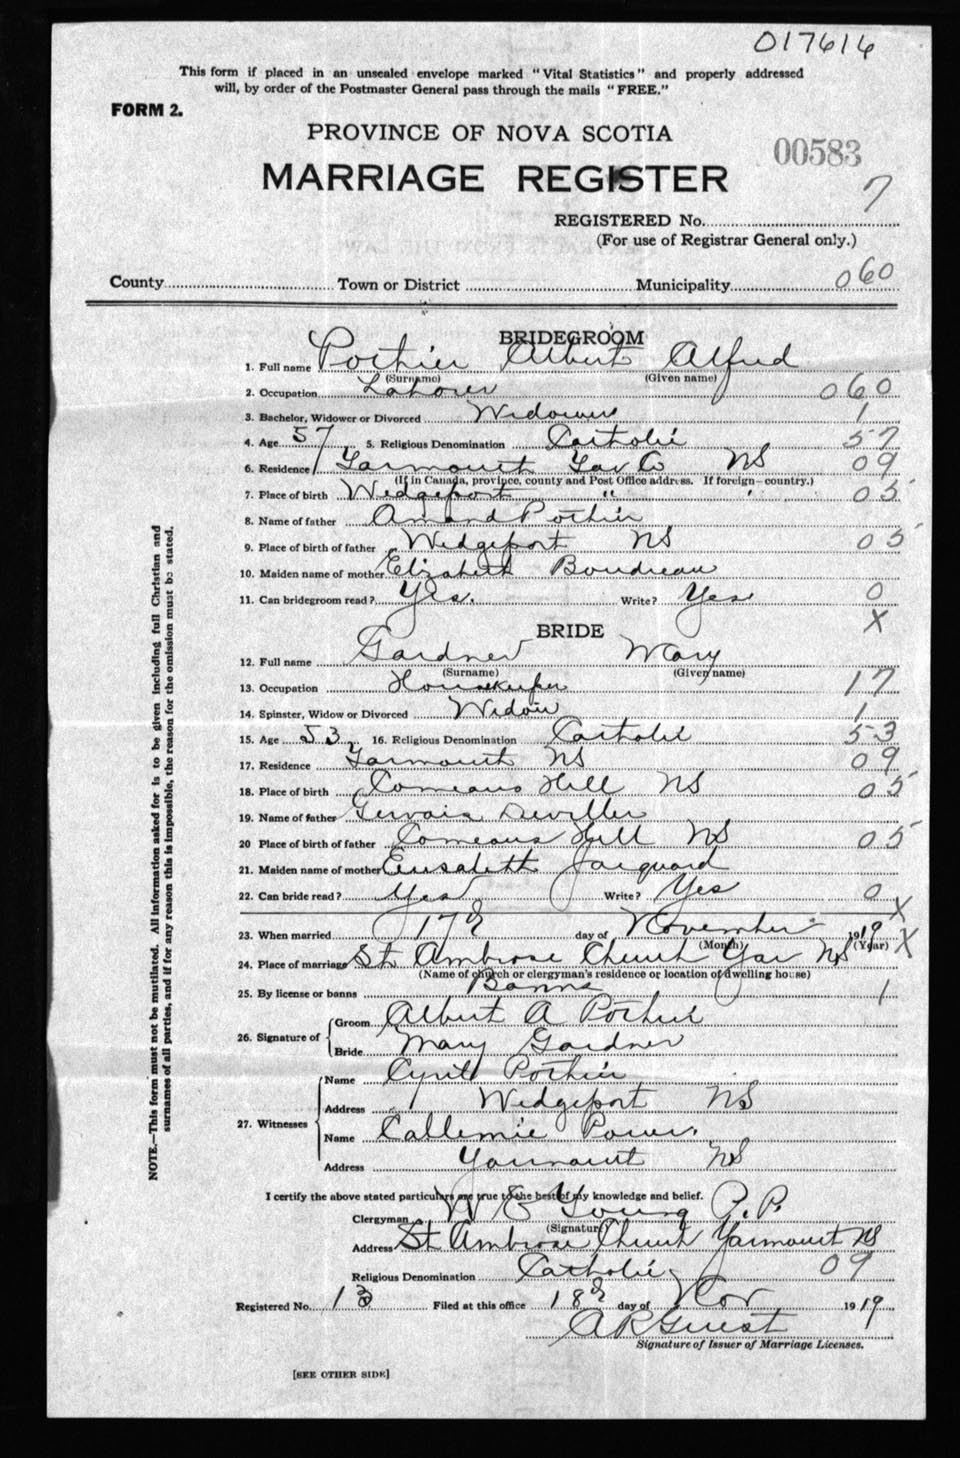 017616
This form if placed in an unsealed envelope marked "Vital Statistics" and properly addressed
will, by order of the Postmaster General pass through the mails "FREE."
FORM 2.
PROVINCE OF NOVA SCOTIA
00583
MARRIAGE REGISTER
7
REGISTERED No.
(For use of Registrar General only.)
County Town or District Municipality 060
BRIDEGROOM
1. Full name Pothier Albert Alfred
(Surname) (Given name)
2. Occupation Laborer 060
3. Bachelor, Widower or Divorced Widower 1
4. Age 57 5. Religious Denomination Catholic 57
6. Residence Yarmouth Yar Co NS 09
(If in Canada, province, county and Post Office address. If foreign—country.)
7. Place of birth Wedgeport " ' 05
8. Name of father Amand Pothier
9. Place of birth of father Wedgeport NS 05
10. Maiden name of mother Elizabeth Boudreau
11. Can bridegroom read? Yes. Write? Yes 0
X
BRIDE
12. Full name Gardner Mary
(Surname) (Given name)
13. Occupation Housekeeper 17
14. Spinster, Widow or Divorced Widow 1
15. Age 53 16. Religious Denomination Catholic 53
17. Residence Yarmouth NS 09
18. Place of birth Comeaus Hill NS 05
19. Name of father Gervais
20 Place of birth of father Comeaus Hill NS 05
21. Maiden name of mother
22. Can bride read? Yes Write? Yes 0
X
23. When married 17th day of November 1919 X
(Month) (Year)
24. Place of marriage St. Ambrose Church Yar NS
(Name of church or clergyman's residence or location of dwelling house)
25. By license or banns Banns 1
26. Signature of
Groom Albert A Pothier
Bride Mary Gardner
27. Witnesses
Name Cyril Pothier
Address Wedgeport NS
Name Power.
Address Yarmouth NS
I certify the above stated particulars are true to the best of my knowledge and belief.
Clergyman W E Young P.P.
(Signature)
Address St Ambrose Church Yarmouth NS
Religious Denomination Catholic 09
Registered No. 13 Filed at this office 18th day of Nov 1919
A R Guest
Signature of Issuer of Marriage Licenses.
[SEE OTHER SIDE]
NOTE.—This form must not be mutilated. All information asked for is to be given including full Christian and
surnames of all parties, and if for any reason this is impossible, the reason for the omission must be stated.